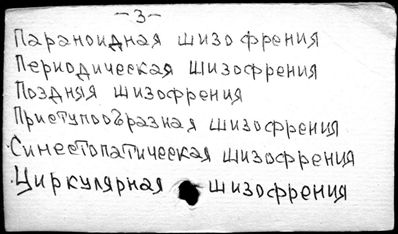 -3-
Параноидная шизофрения
Периодическая шизофрения
Поздняя шизофрения
Приступообразная шизофрения
Синестопатическая шизофрения
Циркулярная шизофрения